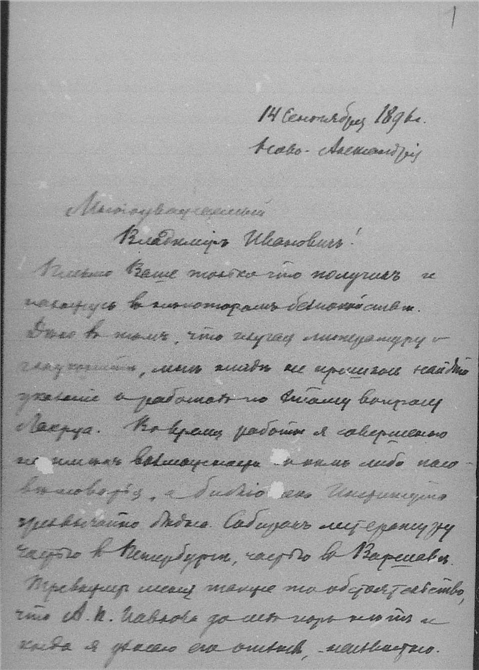 1
14 Сентября 189 г.
Ново-Александрія
Многоуважаемый
Владиміръ Ивановичъ!
Письмо Ваше только что получилъ и
нахожусь в некоторомъ безпокойстве.
Дело в томъ, что изучая литературу о
глауконите, мне нигде не пришлось найти
указаніе о работах по этому вопросу
Во время работы я совершенно
не имелъ возможности с кем либо посо-
ветоваться, а библіотека Института
чрезвычайно бедна. Собиралъ литературу
частью в Петербурге, частью в Варшаве.
Тревожит меня также то обстоятельство,
что А. П. Павлова до сих пор нетъ и
когда я узнаю его отзывъ, неизвестно.